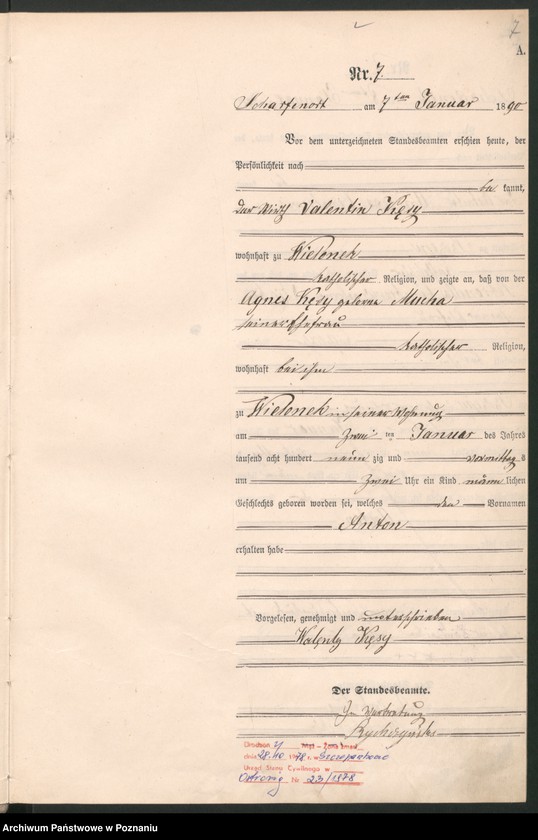 7
A.
Nr. 7.
Scharfenort am 7ten Januar 1890
Vor dem unterzeichneten Standesbeamten erschien heute, der
Persönlichkeit nach
be kannt,
der Wirth Valentin Kęsy
wohnhaft zu Wielonek
katholischer Religion, und zeigte an, daß von der
Agnes Kęsy geborne Mucha
seiner Ehefrau
katholischer Religion,
wohnhaft bei ihm
zu Wielonek in seiner Wohnung
am Zwei ten Januar des Jahres
tausend acht hundert neun zig und vormittags
um Zwei Uhr ein Kind männ lichen
Geschlechts geboren worden sei, welches den Vornamen
Anton
erhalten habe
Vorgelesen, genehmigt und unterschrieben
Walenty Kęsy
Der Standesbeamte.
In Vertretung
dnia 28.10. 1978 r. w
Urząd Stanu Cywilnego w
Ostroróg Nr 23/1978
Archiwum Państwowe w Poznaniu